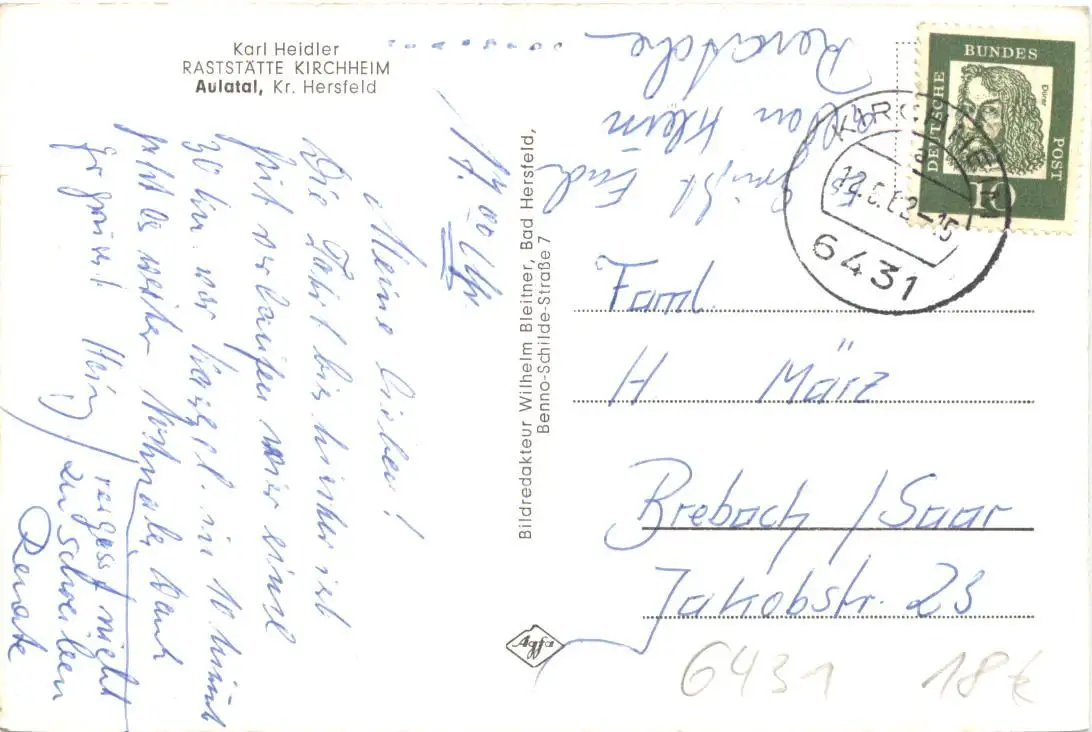 Karl Heidler
RASTSTÄTTE KIRCHHEIM
Aulatal, Kr. Hersfeld
17.00 Uhr
Meine Lieben!
Die Fahrt bis hierher ist
gut verlaufen wir sind
30 km vor Kassel. in 10 Minut
geht es weiter Nochmals Dank
Er grüsst Heinz
vergess nicht
zu schreiben
Renate
Bildredakteur Wilhelm Bleitner, Bad Hersfeld,
Benno-Schilde-Straße 7
Es grüßt Euch
Klein
Renate
DEUTSCHE
BUNDES
POST
Dürer
10
KIRCHHEIM
12.5.62-15
6431
Faml.
H März
Brebach / Saar
Jakobstr. 23
Agfa
6431 18€